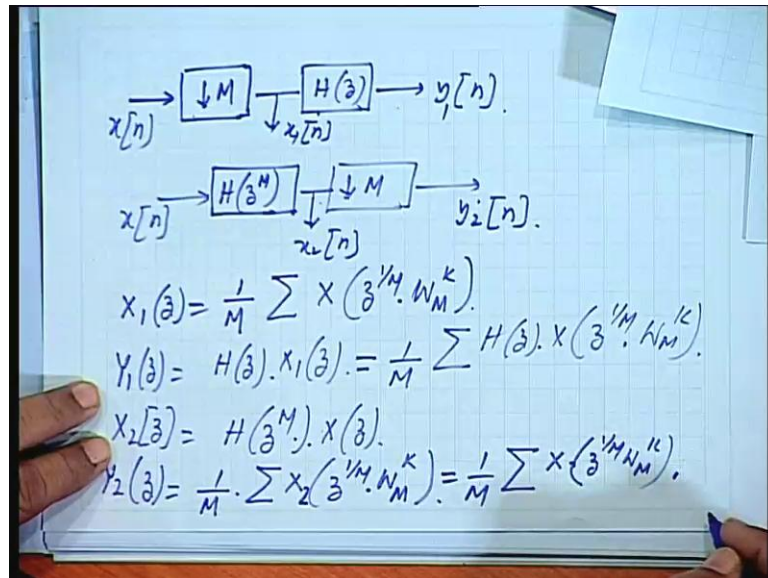 x[n] → ↓M → H(z) → y₁[n].
x₁[n]
x[n] → H(z^M) → ↓M → y₂[n].
x₂[n]
X₁(z) = 1/M ∑ X(z^{1/M}. W_M^K).
Y₁(z) = H(z). X₁(z). = 1/M ∑ H(z). X(z^{1/M}. W_M^K).
X₂[z] = H(z^M.). X(z).
Y₂(z) = 1/M . ∑ X₂(z^{1/M}. W_M^K). = 1/M ∑ X{z^{1/M} W_M^K).